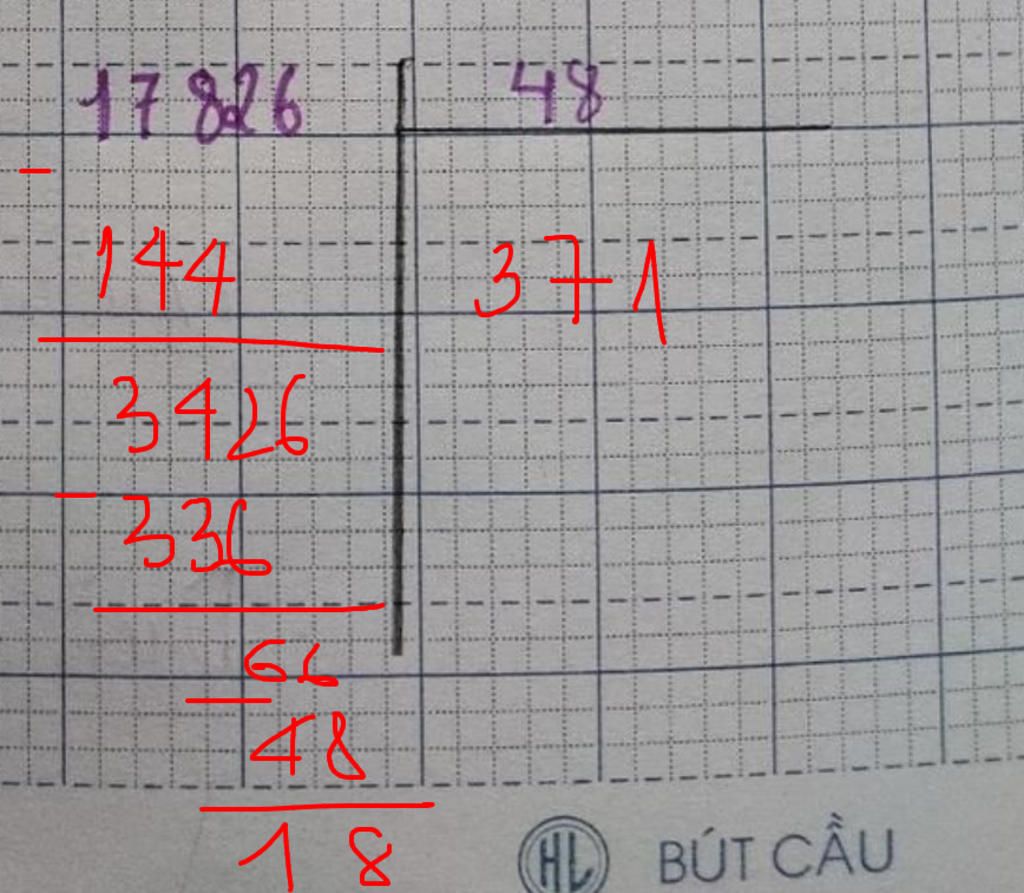 17826 48
-
144 371
3426
- 336
66
- 48
18
HL BÚT CẦU